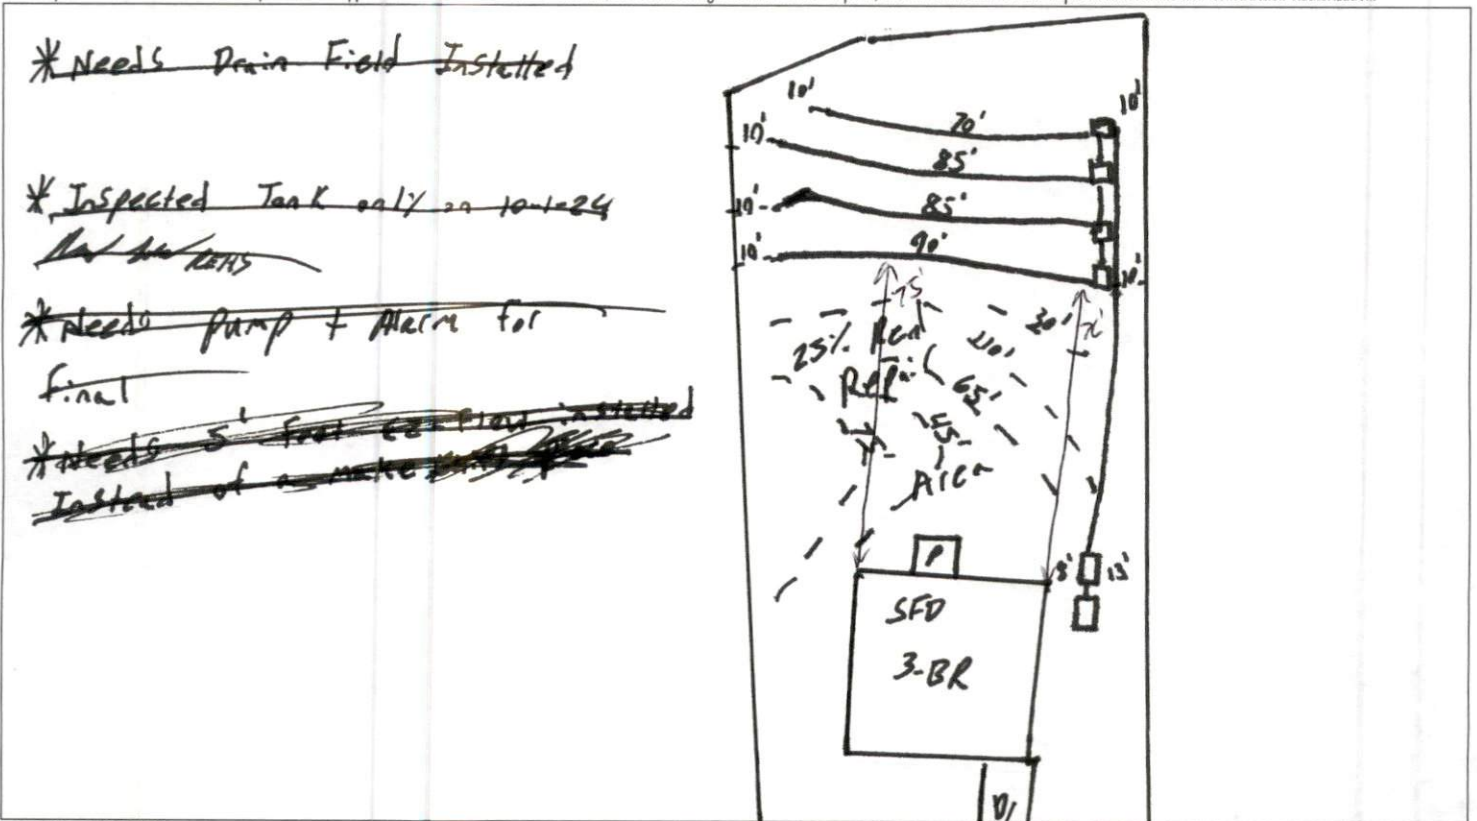 * Needs Drain Field Installed
* Inspected Tank only on 10-1-24
REHS
* Needs pump + Alarm for
final
* Needs 5' feet EZ-Flow installed
Instead of a
10'
70'
10'
10'
85'
10'
85'
10'
90'
10'
75'
25% Red
Repair
Area
20'
40'
65'
P
8'
13'
SFD
3-BR
D/